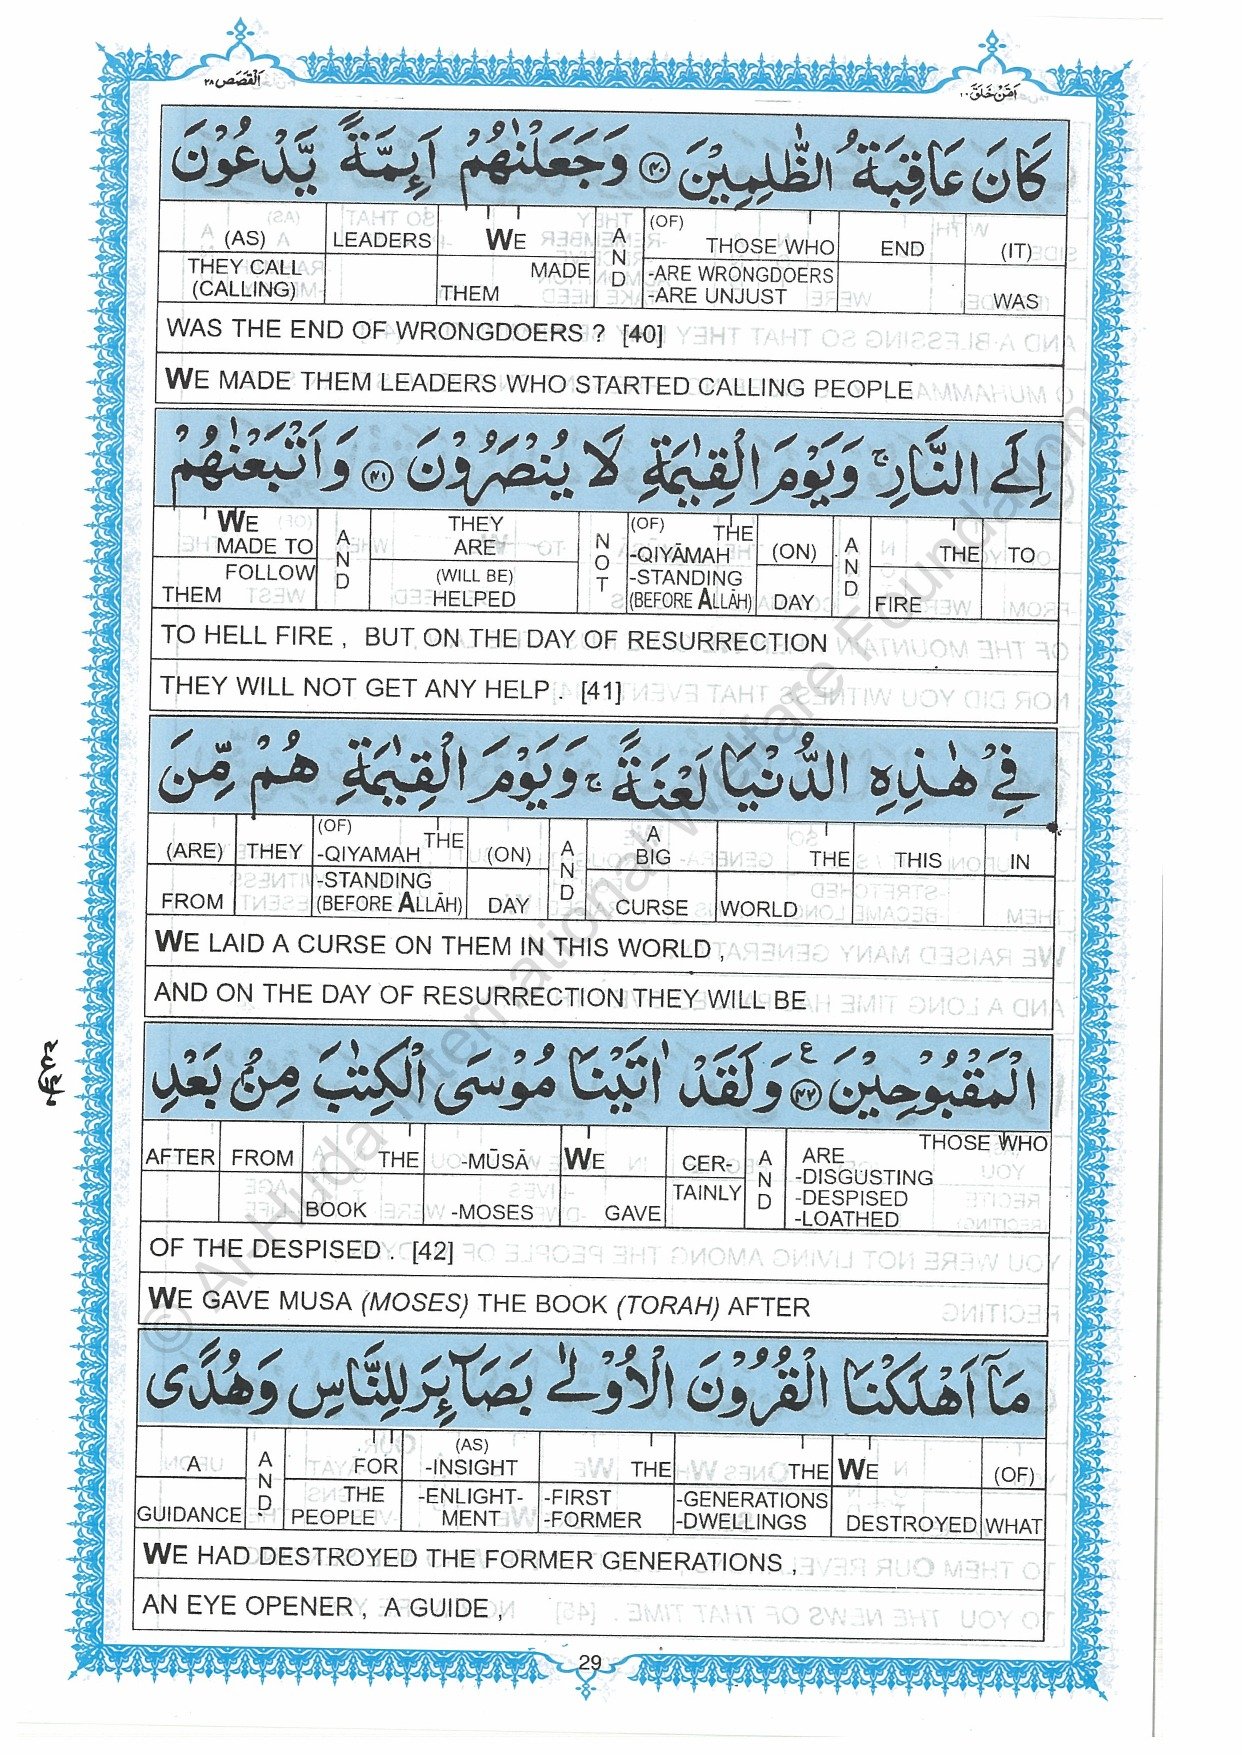 اَمَّنْ خَلَقَ ٢٠
اَلْقَصَص ٢٨
كَانَ عَاقِبَةُ الظّٰلِمِيْنَ ﴿٤٠﴾ وَجَعَلْنٰهُمْ اَئِمَّةً يَّدْعُوْنَ
(AS) LEADERS WE AND (OF) THOSE WHO END (IT)
THEY CALL (CALLING) MADE THEM -ARE WRONGDOERS -ARE UNJUST WAS
WAS THE END OF WRONGDOERS ? [40]
WE MADE THEM LEADERS WHO STARTED CALLING PEOPLE
اِلَى النَّارِ ۚ وَيَوْمَ الْقِيٰمَةِ لَا يُنْصَرُوْنَ ﴿٤١﴾ وَاَتْبَعْنٰهُمْ
WE MADE TO AND THEY ARE NOT (OF) THE -QIYĀMAH (ON) AND THE TO
FOLLOW THEM (WILL BE) HELPED -STANDING (BEFORE ALLĀH) DAY FIRE
TO HELL FIRE , BUT ON THE DAY OF RESURRECTION
THEY WILL NOT GET ANY HELP . [41]
فِيْ هٰذِهِ الدُّنْيَا لَعْنَةً ۚ وَيَوْمَ الْقِيٰمَةِ هُمْ مِّنَ
(ARE) THEY (OF) THE -QIYAMAH (ON) AND A BIG THE THIS IN
FROM -STANDING (BEFORE ALLĀH) DAY CURSE WORLD
WE LAID A CURSE ON THEM IN THIS WORLD ,
AND ON THE DAY OF RESURRECTION THEY WILL BE
الْمَقْبُوْحِيْنَ ﴿٤٢﴾ ع وَلَقَدْ اٰتَيْنَا مُوْسَى الْكِتٰبَ مِنْۢ بَعْدِ
AFTER FROM THE -MŪSĀ WE CER- AND THOSE WHO ARE -DISGUSTING
BOOK -MOSES GAVE TAINLY -DESPISED -LOATHED
OF THE DESPISED . [42]
WE GAVE MUSA (MOSES) THE BOOK (TORAH) AFTER
مَآ اَهْلَكْنَا الْقُرُوْنَ الْاُوْلٰى بَصَآئِرَ لِلنَّاسِ وَهُدًى
A AND FOR (AS) -INSIGHT THE THE WE (OF)
GUIDANCE THE PEOPLE -ENLIGHT-MENT -FIRST -FORMER -GENERATIONS -DWELLINGS DESTROYED WHAT
WE HAD DESTROYED THE FORMER GENERATIONS ,
AN EYE OPENER , A GUIDE ,
29
© Al-Huda International Welfare Foundation